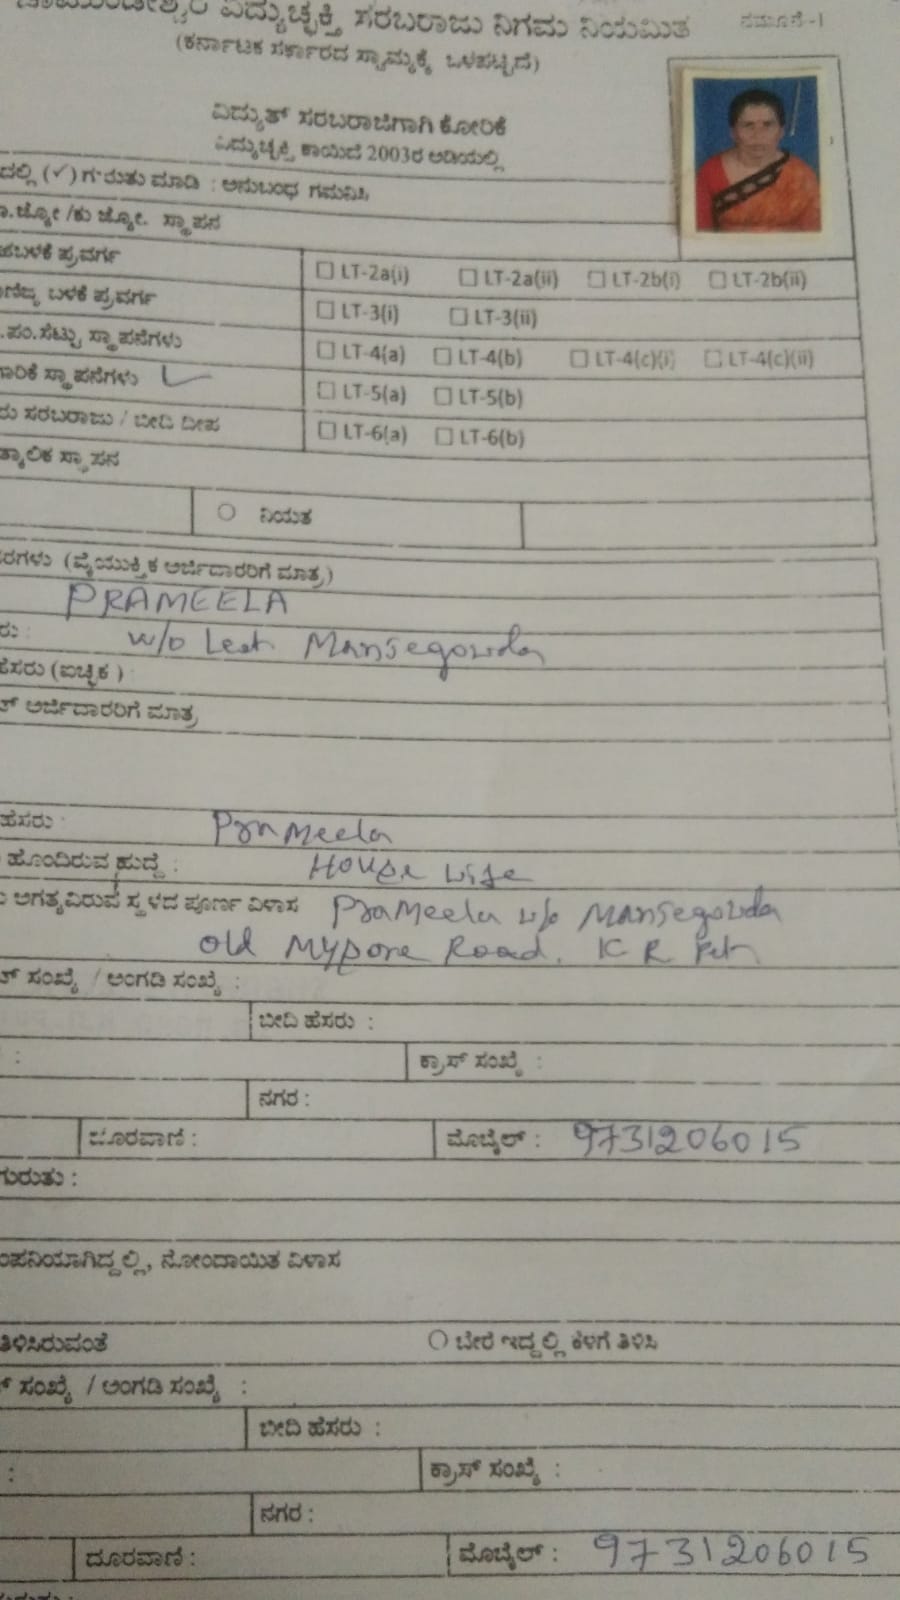 ವಿದ್ಯುಚ್ಛಕ್ತಿ ಸರಬರಾಜು ನಿಗಮ ನಿಯಮಿತ ನಮೂನೆ-1
(ಕರ್ನಾಟಕ ಸರ್ಕಾರದ ಸ್ವಾಮ್ಯಕ್ಕೆ ಒಳಪಟ್ಟಿದೆ)
ವಿದ್ಯುತ್ ಸರಬರಾಜಿಗಾಗಿ ಕೋರಿಕೆ
ವಿದ್ಯುಚ್ಛಕ್ತಿ ಕಾಯಿದೆ 2003ರ ಅಡಿಯಲ್ಲಿ
ದಲ್ಲಿ (✓) ಗುರುತು ಮಾಡಿ : ಅನುಬಂಧ ಗಮನಿಸಿ
ಜ್ಯೋ /ಕು ಜ್ಯೋ. ಸ್ಥಾಪನ
ಬಳಕೆ ಪ್ರವರ್ಗ ☐ LT-2a(i) ☐ LT-2a(ii) ☐ LT-2b(i) ☐ LT-2b(ii)
ಬಳಕೆ ಪ್ರವರ್ಗ ☐ LT-3(i) ☐ LT-3(ii)
.ಪಂ.ಸೆಟ್ಟು ಸ್ಥಾಪನೆಗಳು ☐ LT-4(a) ☐ LT-4(b) ☐ LT-4(c)(i) ☐ LT-4(c)(ii)
ಗಾರಿಕೆ ಸ್ಥಾಪನೆಗಳು ✓ ☐ LT-5(a) ☐ LT-5(b)
ರು ಸರಬರಾಜು / ಬೀದಿ ದೀಪ ☐ LT-6(a) ☐ LT-6(b)
ತ್ಕಾಲಿಕ ಸ್ಥಾಪನ
○ ನಿಯತ
ರಗಳು (ವೈಯುಕ್ತಿಕ ಅರ್ಜಿದಾರರಿಗೆ ಮಾತ್ರ)
PRAMEELA
ರು : w/o Leat Mansegowda
ಹೆಸರು (ಐಚ್ಛಿಕ )
ತ್ ಅರ್ಜಿದಾರರಿಗೆ ಮಾತ್ರ
ಹೆಸರು : Prameela
ಹೊಂದಿರುವ ಹುದ್ದೆ : House wife
ಅಗತ್ಯವಿರುವ ಸ್ಥಳದ ಪೂರ್ಣ ವಿಳಾಸ Prameela w/o Mansegowda
Old Mysore Road. K R Pet
ಸಂಖ್ಯೆ / ಅಂಗಡಿ ಸಂಖ್ಯೆ :
ಬೀದಿ ಹೆಸರು :
: ಕ್ರಾಸ್ ಸಂಖ್ಯೆ :
ನಗರ :
ದೂರವಾಣಿ : ಮೊಬೈಲ್ : 9731206015
ಗುರುತು :
ಂಪನಿಯಾಗಿದ್ದಲ್ಲಿ, ನೋಂದಾಯಿತ ವಿಳಾಸ
ತಿಳಿಸಿರುವಂತೆ ○ ಬೇರೆ ಇದ್ದಲ್ಲಿ ಕೆಳಗೆ ತಿಳಿಸಿ
ಸಂಖ್ಯೆ / ಅಂಗಡಿ ಸಂಖ್ಯೆ :
ಬೀದಿ ಹೆಸರು :
: ಕ್ರಾಸ್ ಸಂಖ್ಯೆ :
ನಗರ :
ದೂರವಾಣಿ : ಮೊಬೈಲ್ : 9731206015